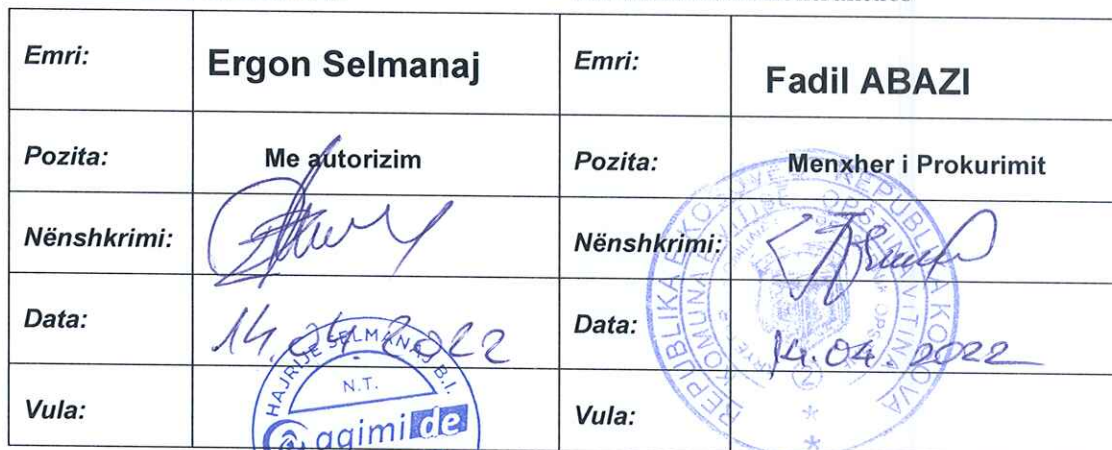 Emri: Ergon Selmanaj Emri: Fadil ABAZI
Pozita: Me autorizim Pozita: Menxher i Prokurimit
Nënshkrimi: Nënshkrimi:
Data: 14.04.2022 Data: 14.04.2022
Vula: Vula:
HAJRIJE SELMANAJ B.I.
N.T.
agimi de
REPUBLIKA E KOSOVËS REPUBLIKA KOSOVA
KOMUNA E VITISË OPŠTINA VITINA